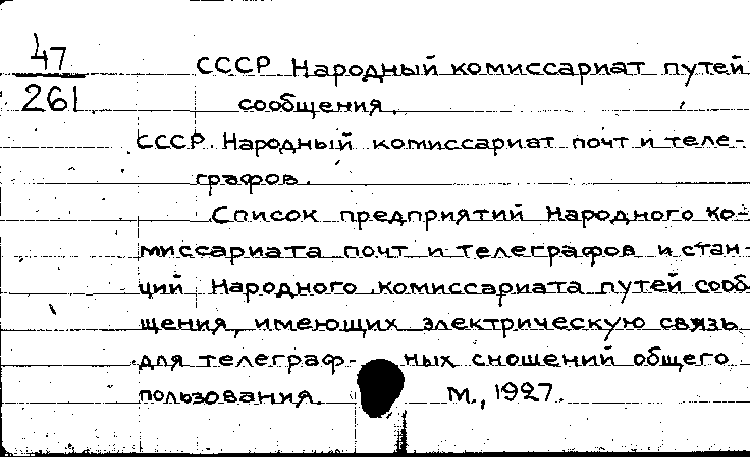 47
261
СССР Народный комиссариат путей
сообщения.
СССР. Народный комиссариат почт и теле-
графов.
Список предприятий Народного ко-
миссариата почт и телеграфов и стан-
ций Народного комиссариата путей сооб
щения, имеющих электрическую связь
для телеграф- ных сношений общего
пользования. М., 1927.